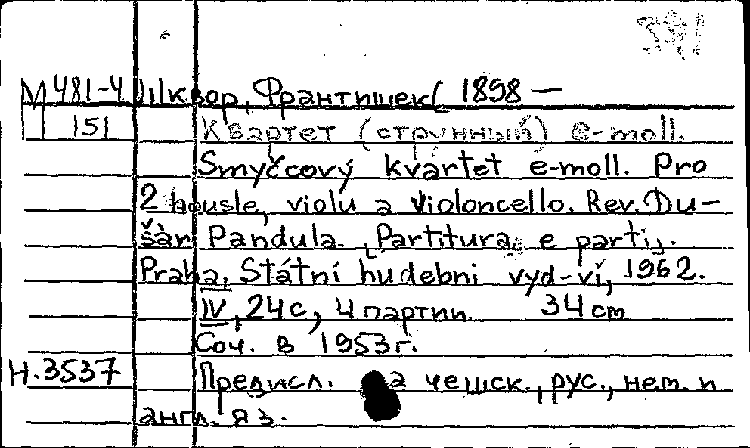 391
М 481-4 Шквор, Франтишек( 1898 —
151 Квартет (струнный) e-moll.
Smyčcový kvartet e-moll. Pro
2 housle, violu a violoncello. Rev. Du-
šan Pandula. [Partitura e parti].
Praha, Státní hudebni vyd-ví, 1962.
IV, 24 с, 4 партии 34 cm
Соч. в 1953 г.
Н.3537 Предисл. на чешск., рус., нем. и
англ. яз.